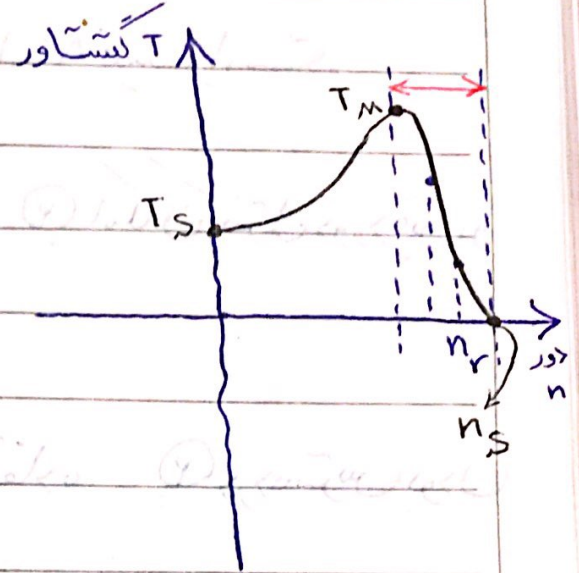 گشتاور T
T_M
T_S
n_r
دور
n
n_S